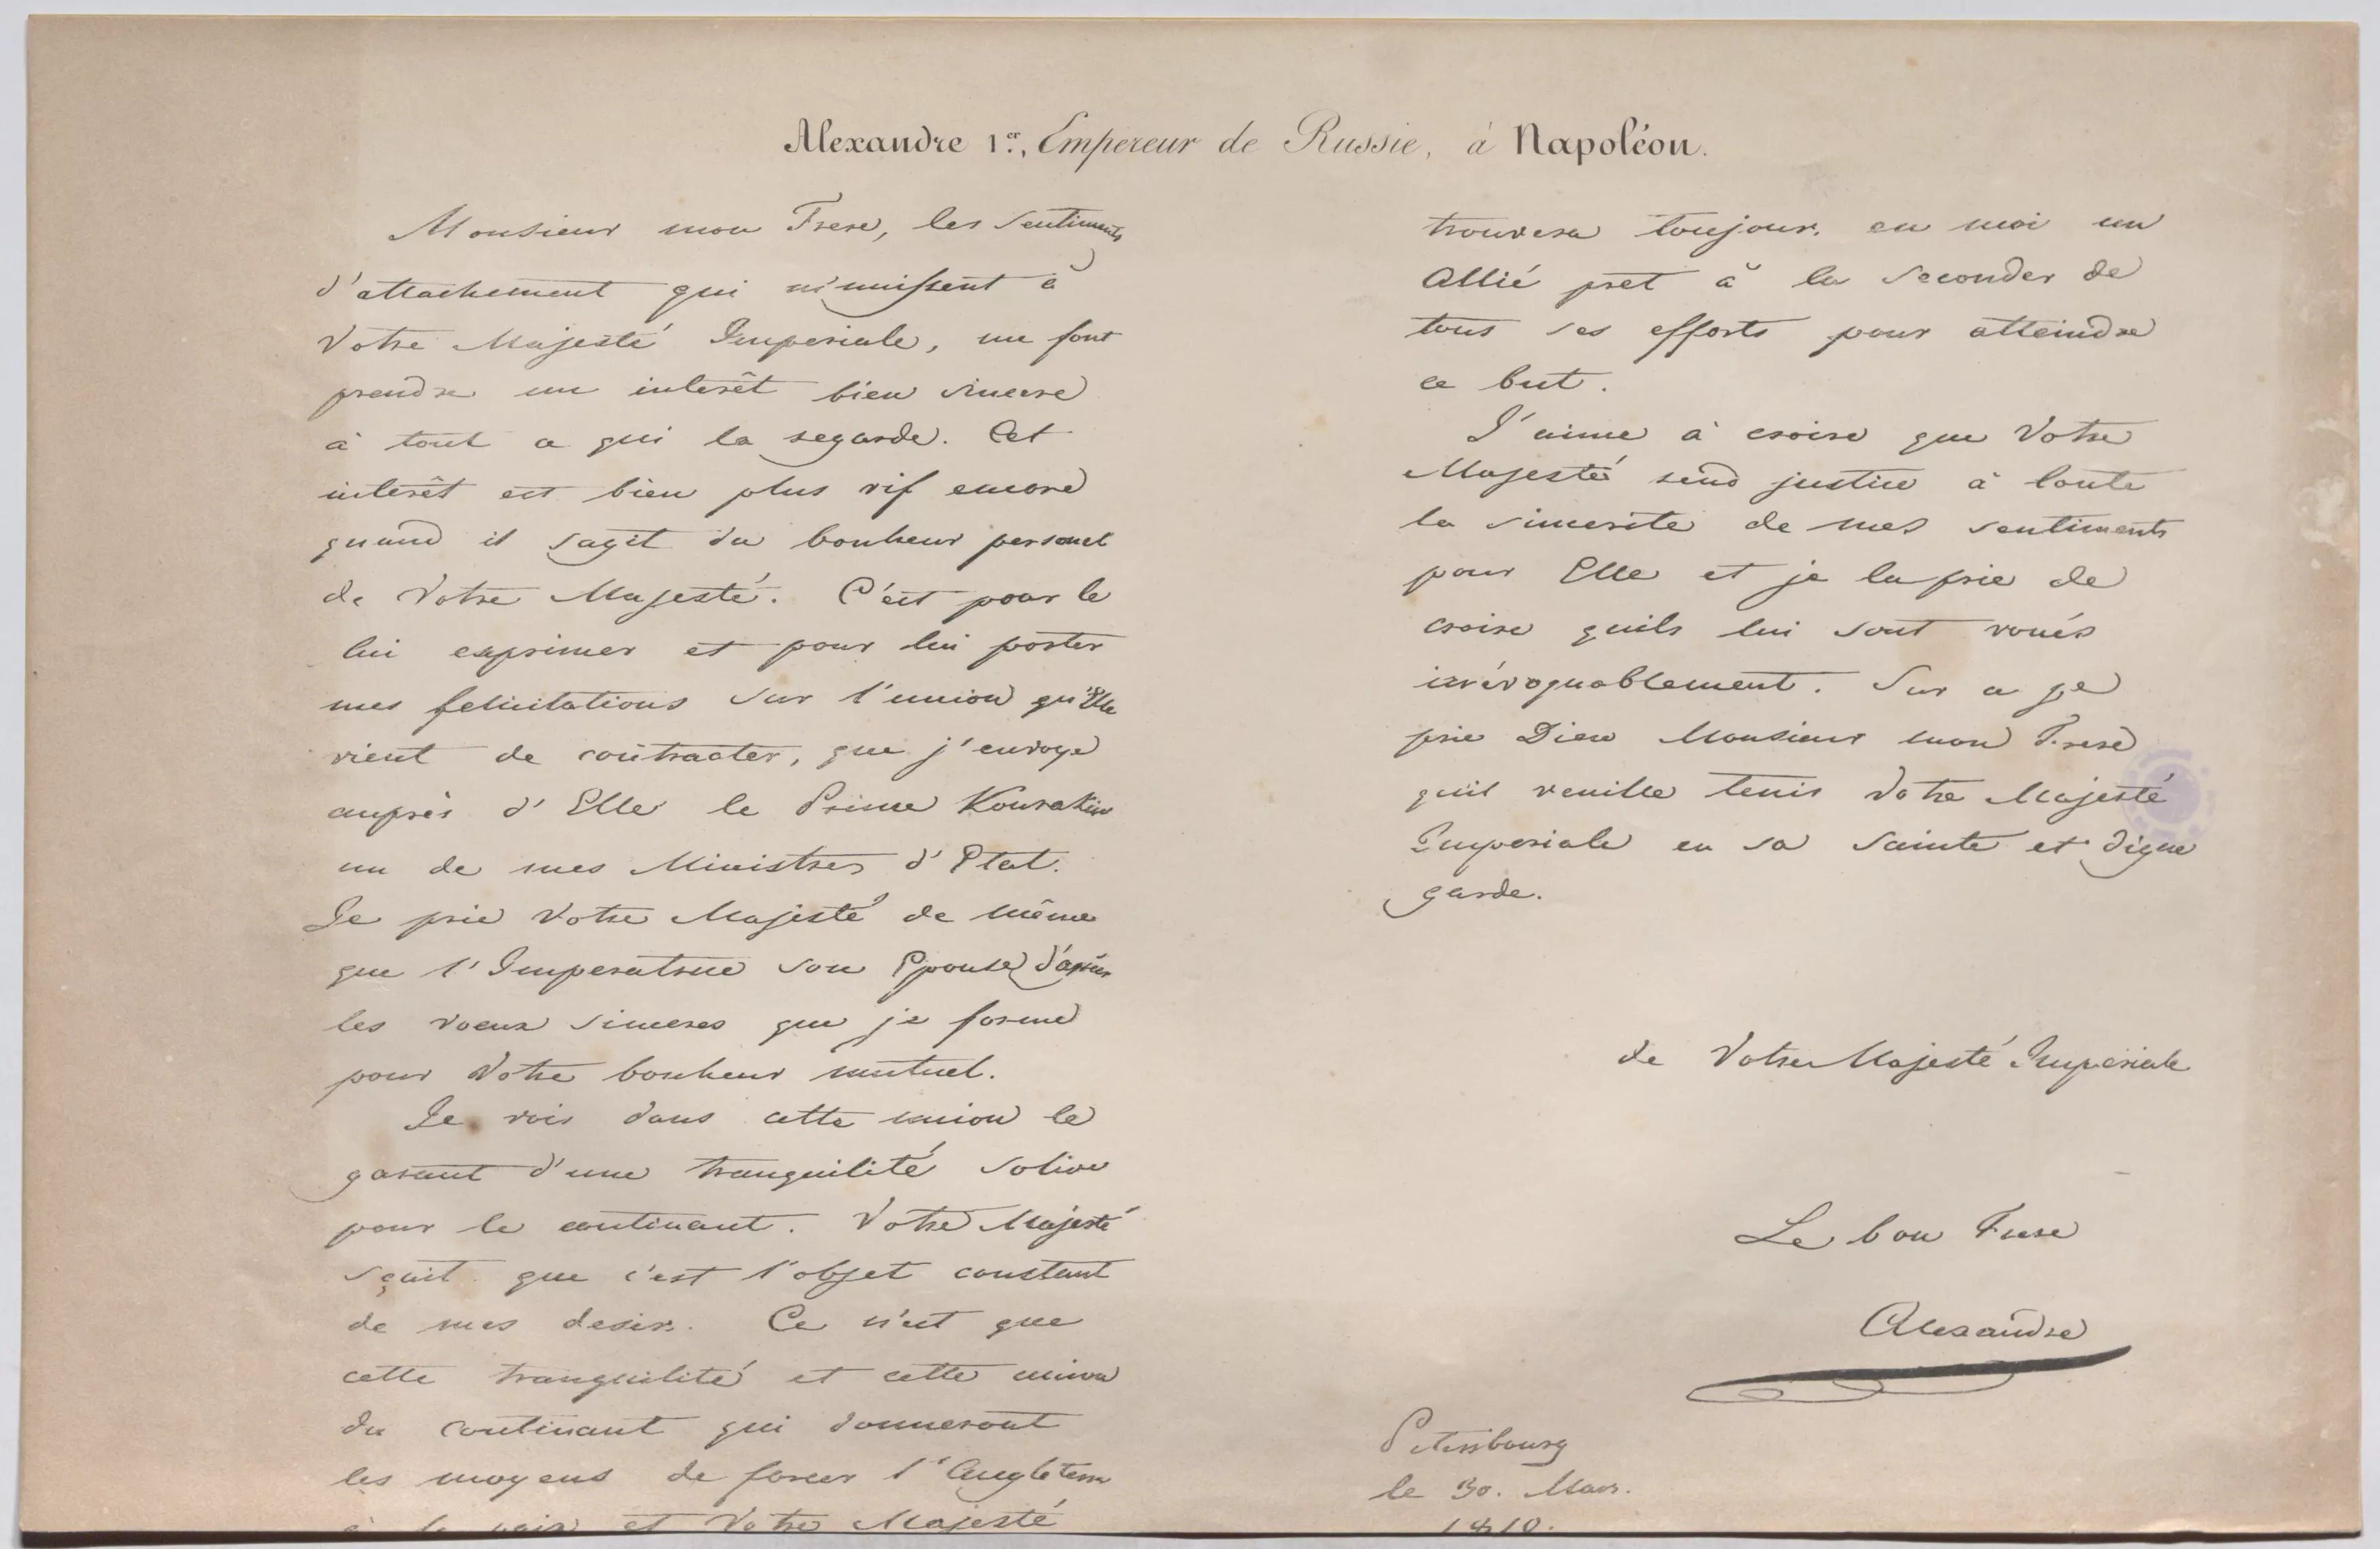 Alexandre 1er, Empereur de Russie, à Napoléon.
Monsieur mon Frere, les sentiments
d'attachement qui m'unissent à
Votre Majesté Imperiale, me font
prendre un interêt bien sincere
à tout ce qui la regarde. Cet
interêt est bien plus vif encore
quand il s'agit du bonheur personel
de Votre Majesté. C'est pour le
lui exprimer et pour lui porter
mes felicitations sur l'union qu'Elle
vient de contracter, que j'envoye
auprès d'Elle le Prince Kourakin
un de mes Ministres d'Etat.
Je prie Votre Majesté de même
que l'Imperatrice son Epouse d'agréer
les voeux sinceres que je forme
pour Votre bonheur mutuel.
Je vois dans cette union le
garant d'une tranquilité solide
pour le continant. Votre Majesté
sçait que c'est l'objet constant
de mes desirs. Ce n'est que
cette tranquilité et cette union
du continant qui donneront
les moyens de forcer l'Angleterre
à la paix et Votre Majesté
trouvera toujours en moi un
Allié pret à la seconder de
tous ses efforts pour atteindre
ce but.
J'aime à croire que Votre
Majesté rend justice à toute
la sincerite de mes sentiments
pour Elle et je la prie de
croire quils lui sont voués
irrévoquablement. Sur ce je
prie Dieu Monsieur mon Frere
quil veuille tenir Votre Majesté
Imperiale en sa Sainte et digne
garde.
de Votre Majesté Imperiale
Le bon Frere
Alexandre
Petersbourg
le 30. Mars.
1810.